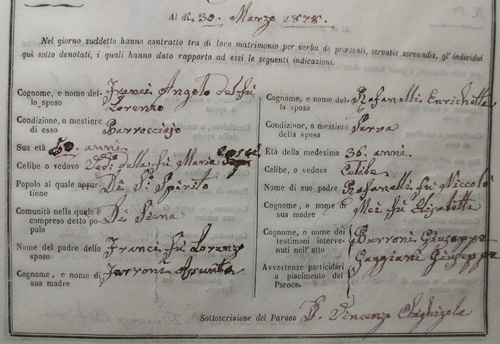 Al dì 30. Marzo 1878.
Nel giorno suddetto hanno contratto tra di loro matrimonio per verba de præsenti, servatis servandis, gl' individui
qui sotto denotati, i quali hanno dato rapporto ad essi le seguenti indicazioni.
Cognome, e nome dello sposo
Franci Angolo del fu
Lorenzo
Condizione, o mestiere di esso
Barrocciajo
Sua età
50. anni
Celibe o vedovo
Ved: della fu Maria
Popolo al quale appartiene
Di S. Spirito
Comunità nella quale è compreso detto popolo
Di Siena
Nome del padre dello sposo
Franci fu Lorenzo
Cognome, e nome di sua madre
Assunta
Cognome, e nome della sposa
Rafanelli Enrichetta
Condizione, o mestiere della sposa
Serva
Età della medesima
36. anni
Celibe, o vedova
Celibe
Nome di suo padre
Rafanelli fu Niccolò
Cognome, e nome di sua madre
Mei fu Elisabetta
Cognome, e nome dei testimoni intervenuti nell'atto
Burroni Giuseppe
Gaggiani Giuseppe
Avvertenze particolari a piacimento del Paroco.
Sottoscrizione del Paroco
P. Vincenzo Chighizola